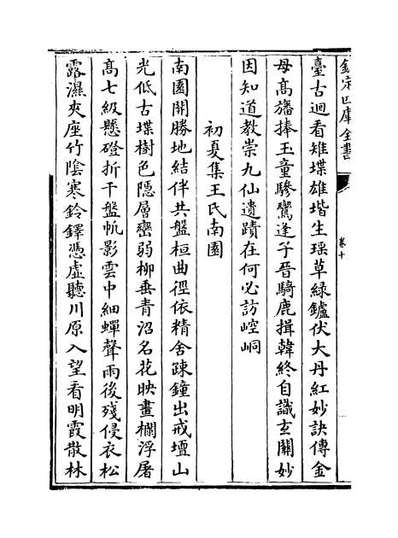 欽定四庫全書
卷十
臺古迥看雉堞雄堦生瑶草綠鑪伏大丹紅妙訣傳金
母高旛捧玉童驂鸞逢子晉騎鹿揖韓終自識玄關妙
因知道教崇九仙遺蹟在何必訪崆峒
初夏集王氏南園
南園開勝地結伴共盤桓曲徑依精舍疎鐘出戒壇山
光低古堞樹色隱層巒弱柳垂青沼名花映畫欄浮屠
高七級懸磴折千盤帆影雲中細蟬聲雨後殘侵衣松
露濕夾座竹陰寒鈴鐸憑虛聽川原入望看明霞散林